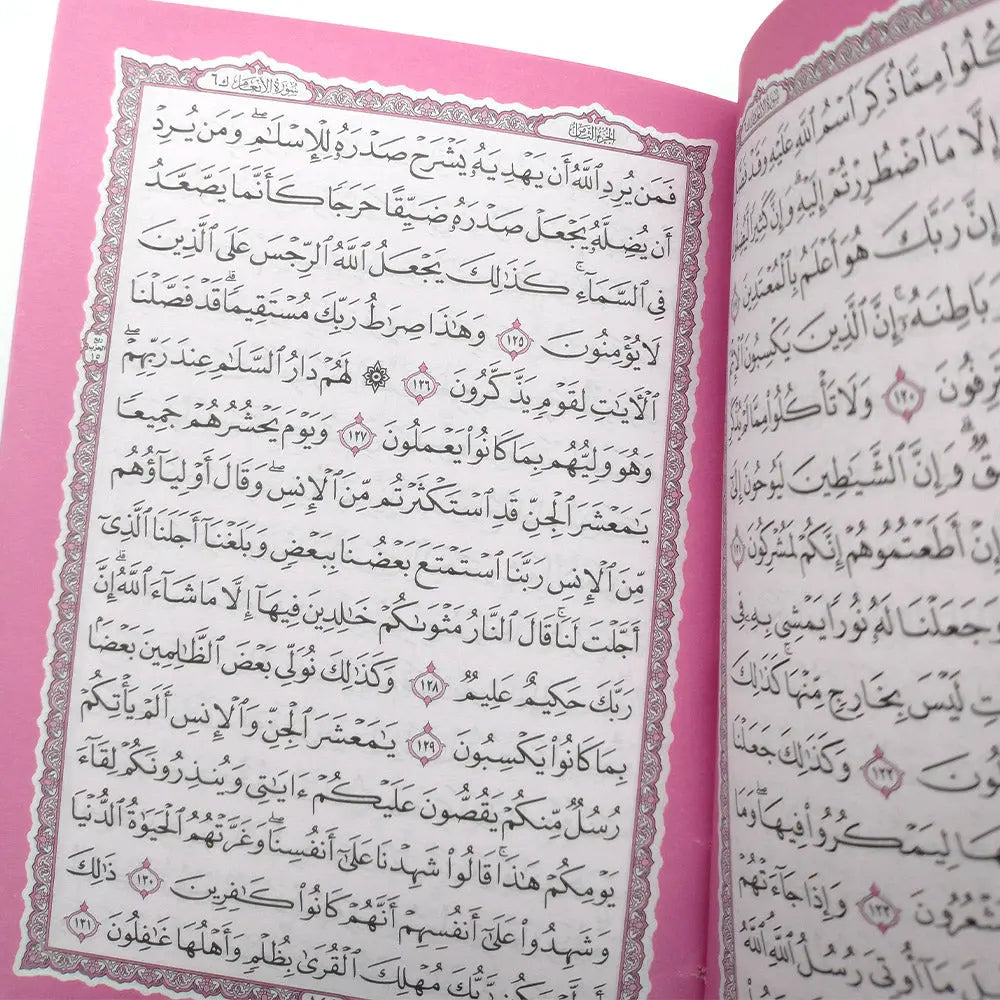 مِمَّا ذُكِرَ ٱسْمُ ٱللَّهِ عَلَيْهِ وَقَدْ
إِلَّا مَا ٱضْطُرِرْتُمْ إِلَيْهِ ۗ وَإِنَّ كَثِيرًا
إِنَّ رَبَّكَ هُوَ أَعْلَمُ بِٱلْمُعْتَدِينَ
بَاطِنَهُۥٓ ۚ إِنَّ ٱلَّذِينَ يَكْسِبُونَ
١٢٠ وَلَا تَأْكُلُوا۟ مِمَّا لَمْ
وَإِنَّ ٱلشَّيَٰطِينَ لَيُوحُونَ إِلَىٰٓ
أَطَعْتُمُوهُمْ إِنَّكُمْ لَمُشْرِكُونَ ١٢١
جَعَلْنَا لَهُۥ نُورًا يَمْشِى بِهِۦ فِى
لَيْسَ بِخَارِجٍ مِّنْهَا ۚ كَذَٰلِكَ
١٢٢ وَكَذَٰلِكَ جَعَلْنَا
لِيَمْكُرُوا۟ فِيهَا ۖ وَمَا
١٢٣ وَإِذَا جَآءَتْهُمْ
مَآ أُوتِىَ رُسُلُ ٱللَّهِ ۘ ٱللَّهُ
الجزء الثامن
سورة الأنعام ٦
فَمَن يُرِدِ ٱللَّهُ أَن يَهْدِيَهُۥ يَشْرَحْ صَدْرَهُۥ لِلْإِسْلَٰمِ ۖ وَمَن يُرِدْ
أَن يُضِلَّهُۥ يَجْعَلْ صَدْرَهُۥ ضَيِّقًا حَرَجًا كَأَنَّمَا يَصَّعَّدُ
فِى ٱلسَّمَآءِ ۚ كَذَٰلِكَ يَجْعَلُ ٱللَّهُ ٱلرِّجْسَ عَلَى ٱلَّذِينَ
لَا يُؤْمِنُونَ ١٢٥ وَهَٰذَا صِرَٰطُ رَبِّكَ مُسْتَقِيمًا ۗ قَدْ فَصَّلْنَا
ٱلْءَايَٰتِ لِقَوْمٍ يَذَّكَّرُونَ ١٢٦ ۞ لَهُمْ دَارُ ٱلسَّلَٰمِ عِندَ رَبِّهِمْ ۖ
ربع
الحزب
١٥
وَهُوَ وَلِيُّهُم بِمَا كَانُوا۟ يَعْمَلُونَ ١٢٧ وَيَوْمَ يَحْشُرُهُمْ جَمِيعًا
يَٰمَعْشَرَ ٱلْجِنِّ قَدِ ٱسْتَكْثَرْتُم مِّنَ ٱلْإِنسِ ۖ وَقَالَ أَوْلِيَآؤُهُم
مِّنَ ٱلْإِنسِ رَبَّنَا ٱسْتَمْتَعَ بَعْضُنَا بِبَعْضٍ وَبَلَغْنَآ أَجَلَنَا ٱلَّذِىٓ
أَجَّلْتَ لَنَا ۚ قَالَ ٱلنَّارُ مَثْوَىٰكُمْ خَٰلِدِينَ فِيهَآ إِلَّا مَا شَآءَ ٱللَّهُ ۗ إِنَّ
رَبَّكَ حَكِيمٌ عَلِيمٌ ١٢٨ وَكَذَٰلِكَ نُوَلِّى بَعْضَ ٱلظَّٰلِمِينَ بَعْضًۢا
بِمَا كَانُوا۟ يَكْسِبُونَ ١٢٩ يَٰمَعْشَرَ ٱلْجِنِّ وَٱلْإِنسِ أَلَمْ يَأْتِكُمْ
رُسُلٌ مِّنكُمْ يَقُصُّونَ عَلَيْكُمْ ءَايَٰتِى وَيُنذِرُونَكُمْ لِقَآءَ
يَوْمِكُمْ هَٰذَا ۚ قَالُوا۟ شَهِدْنَا عَلَىٰٓ أَنفُسِنَا ۖ وَغَرَّتْهُمُ ٱلْحَيَوٰةُ ٱلدُّنْيَا
وَشَهِدُوا۟ عَلَىٰٓ أَنفُسِهِمْ أَنَّهُمْ كَانُوا۟ كَٰفِرِينَ ١٣٠ ذَٰلِكَ
رَّبُّكَ مُهْلِكَ ٱلْقُرَىٰ بِظُلْمٍ وَأَهْلُهَا غَٰفِلُونَ ١٣١